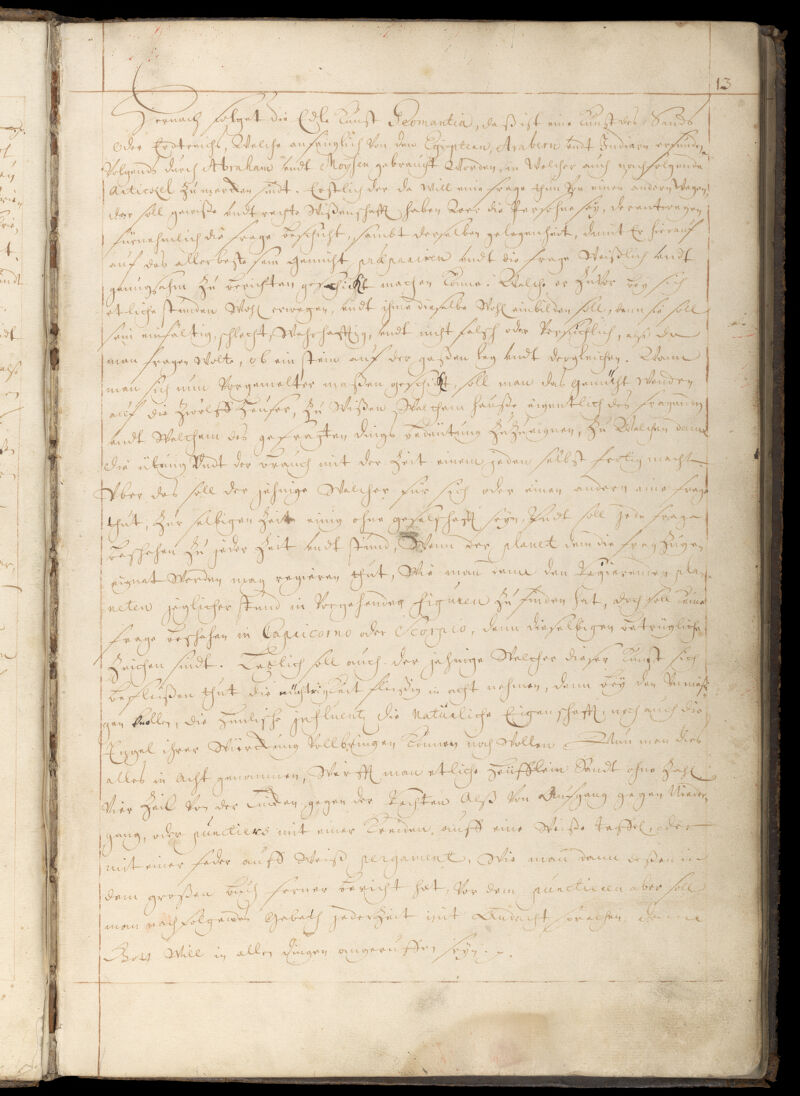 13
Hernach folget die Edle Kunst Geomantia, daß ist eine Kunst des Sands
oder Erdtreichs, Welche anfenglich von den Egiptien, Arabien undt Indianern erfunden
Volgends durch Abraham undt Moysen gebraucht worden, in Welcher auch nachfolgende
Articul zu mercken sindt. Erstlich der da will eine frage thun zu einen andern Wegen
der soll gewiße undt rechte Wißenschafft haben Wer die Persohne sey, derentwegen
fürnehmlich die frage beschicht, sambt derselben gelegenheit, damit er hierauf
auf das allerbeste sein gemüth præparieren undt die frage Weißlich undt
genugsahm zu berichten geschickt machen könne. Welche er zuvor bey sich
etliche stunden Wohl erwegen, undt ihme dieselbe Wohl einbilden soll, dann sie soll
sein einfältig, schlecht, Wahrhafftig, undt nicht falsch oder versuchlich, als da
man fragen wolte, ob ein stein auf der gaßen leg undt dergleichen. Wann
man sich nun vorgemelter maßen geschickt, soll man das gemüth wenden
auf die Zwölff Heuser, zu wißen Welchem Hauße eigentlich des fragenden
undt Welchem des gefragten dings bedeutung zuzueignen, zu Welchen dann
die übung undt der brauch mit der Zeit einem jeden selbst fertig macht
Uber das soll der jehnige Welcher für sich oder einen andern eine frage
thut, zur selbigen Zeit einig ohne geselschafft seyn, Undt soll jede frage
beschehen zu jeder Zeit undt stund, Wenn der planet dem die frag zuge-
eignet Werden mag regieren thut, Wie man dann den Regierenden pla-
neten jeglicher stund in Vorgehenden figuren zu finden hat, doch soll keine
frage beschehen in Capricorno oder Scorpio, denn dieselbigen betrügliche
Zeichen sindt. Letzlich soll auch der jehnige Welcher dieser Kunst sich
befleißen thut die nüchtrigkeit fleißig in acht nehmen, denn bey den Unmäßi-
gen Vollen, die Himlische influentz die Natürliche Eigenschafft noch auch die
Engel ihrer Würckung Vollbringen können noch wollen. Wann man dies
alles in acht genommen, Wirfft man etliche Heufflein Sandt ohne Zahl
Vier Zeil von der Lincken gegen der Rechten alß von Aufgang gegen Nieder-
gang, oder punctiers mit einer Kreiden auff eine Weiße taffel, oder
mit einer feder auff Weiß pergament, Wie man dann deßen in
dem großen buch ferner bericht hat, Vor dem punctieren aber soll
man nachfolgendes Gebeth jederzeit mit Andacht sprechen, denn
Gott Will in allen dingen angeruffen seyn.